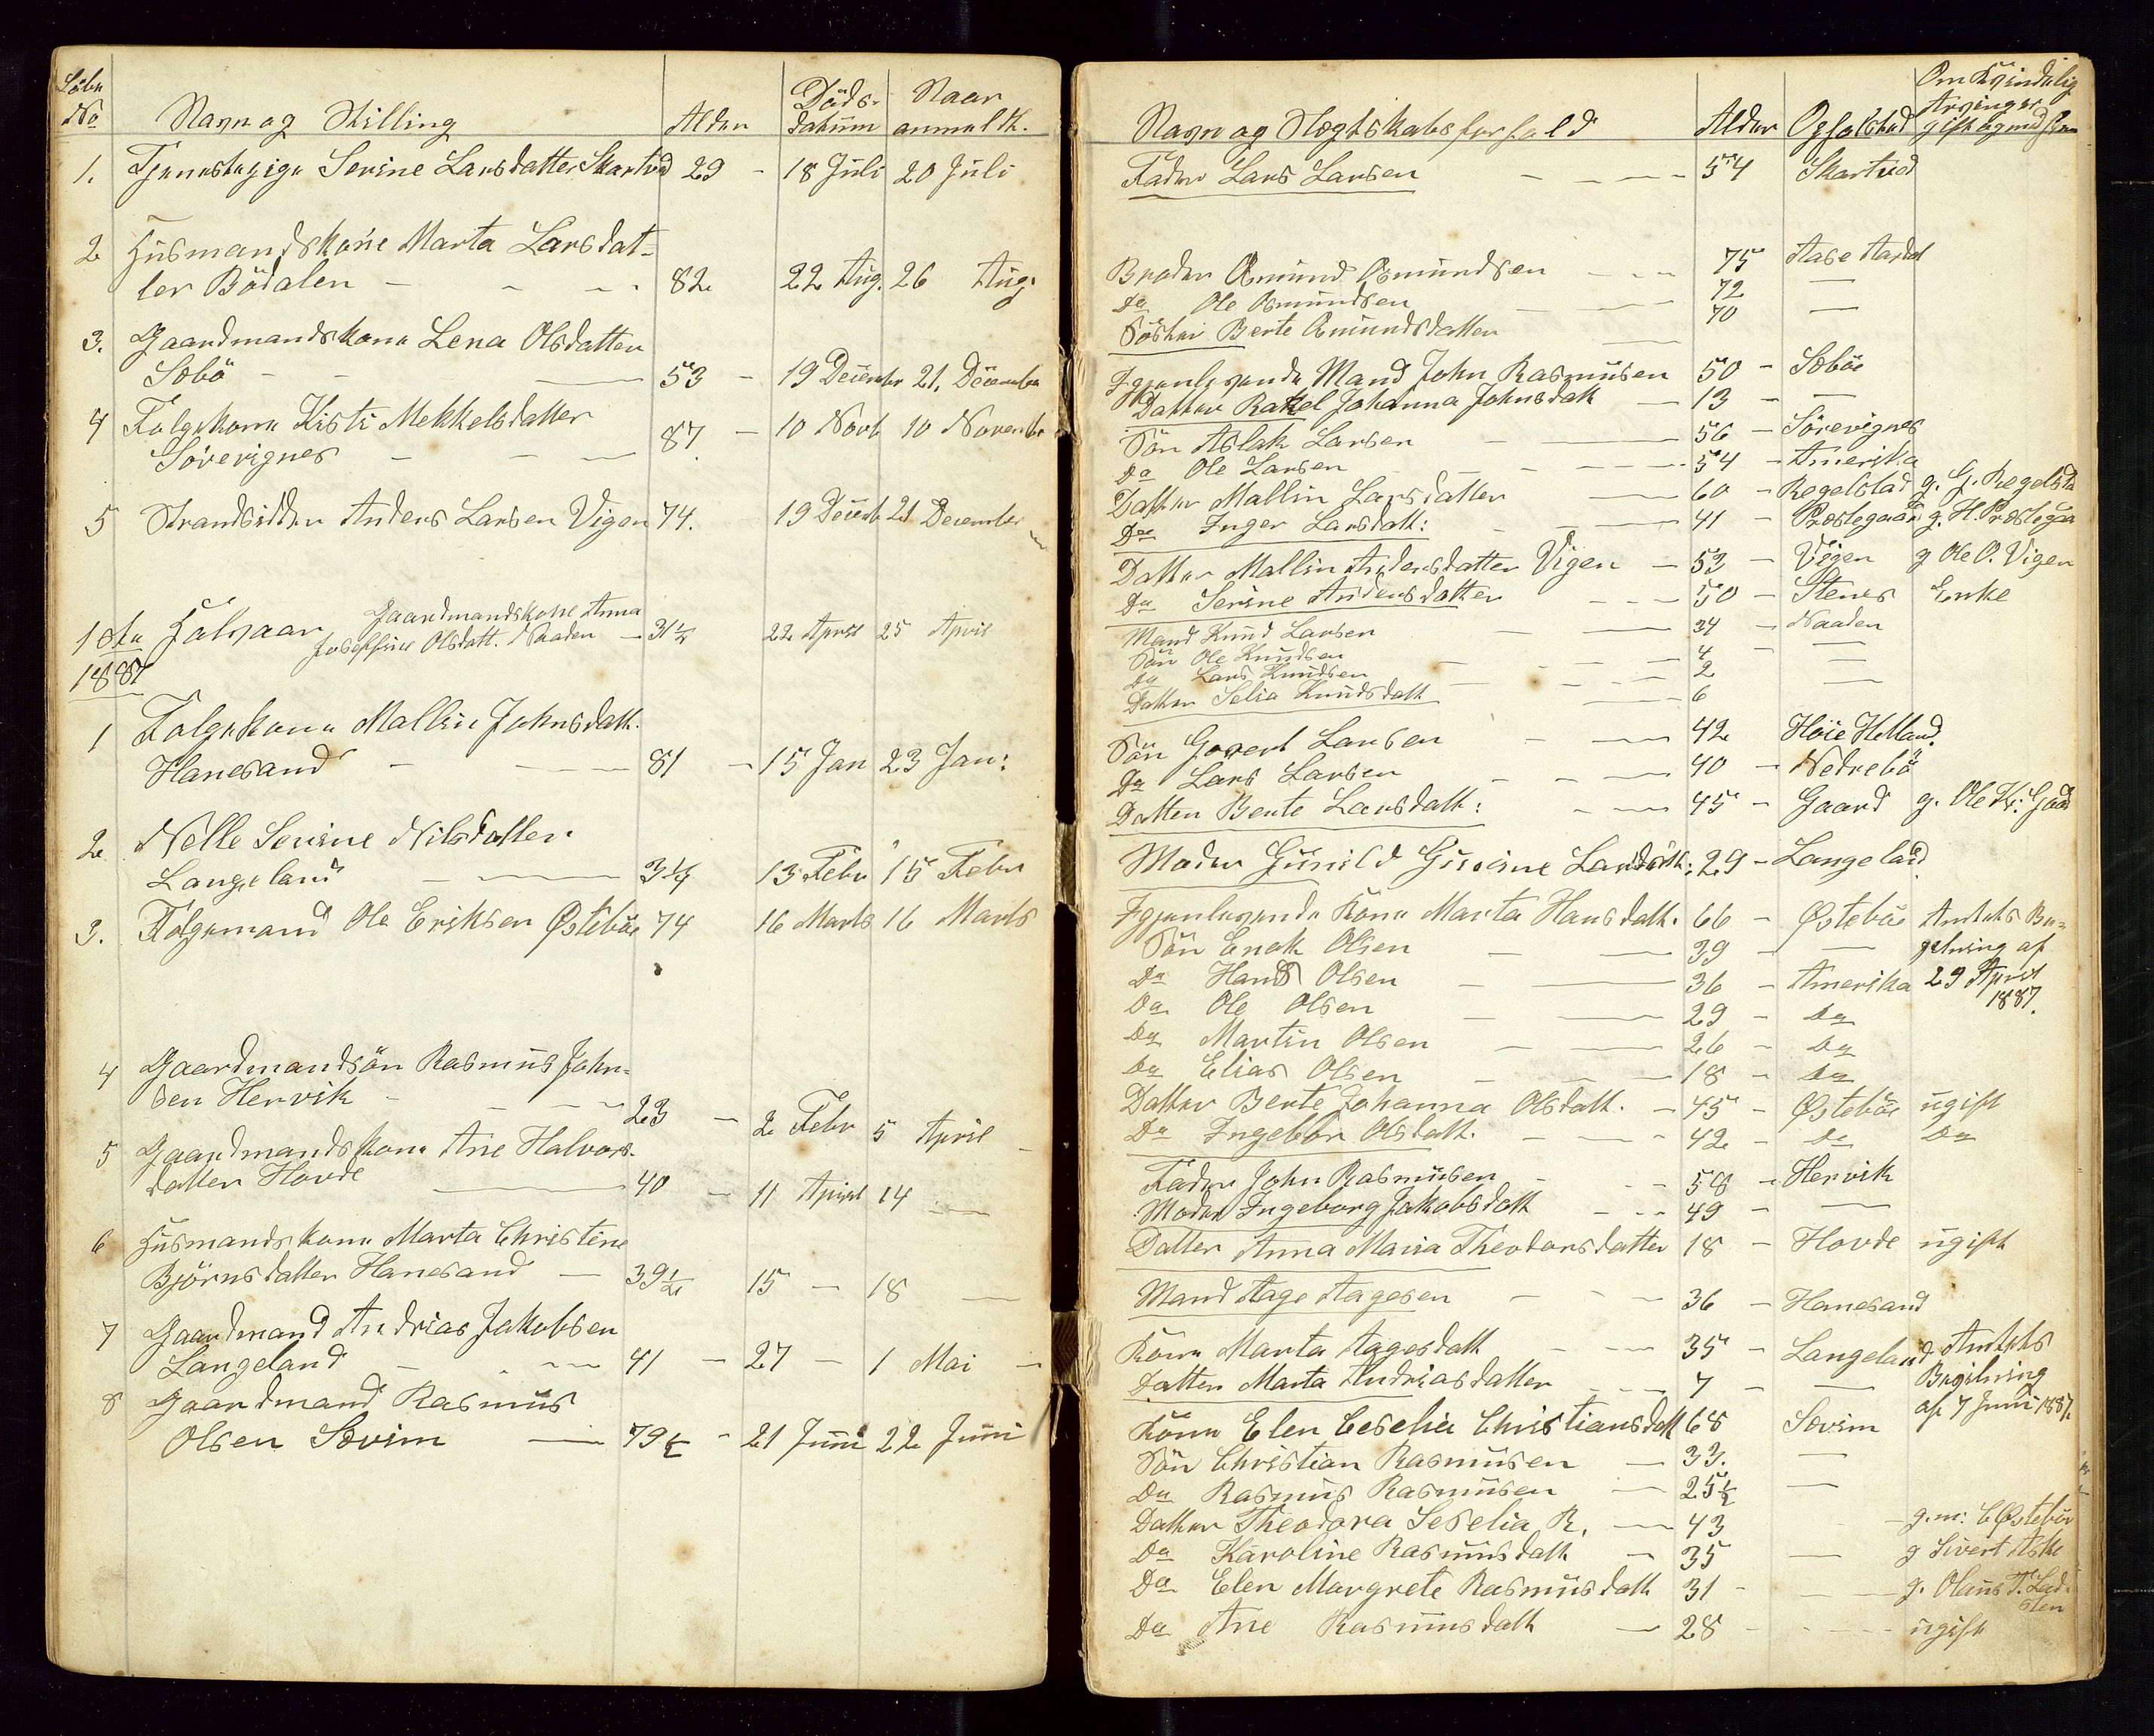 Löbe
No
Navn og Stilling
Alder
Döds-
datum
Naar
anmeldt.
1. Tjenestepige Serine Larsdatter Skartved 29 - 18 Juli 20 Juli
2 Husmandskone Marta Larsdat-
ter Bödalen - - - - 82 22 Aug. 26 Aug.
3. Gaardmandskone Lena Olsdatter
Sæbö - - 53 - 19 December 21. December
4 Folgekone Kisti Mekkelsdatter
Sörevignes - - 87 - 10 Novb 10 November
5 Strandsidder Anders Larsen Vigen 74. 19 Decemb 21 December
1ste Halvaar Gaardmandskone Anna
Josephine Olsdatt. Naaden - 31½ 22 April 25 April
1887
1 Folgekone Mallin Johnsdatt.
Hanesand - 81 - 15 Jan 23 Jan:
2 Nelle Serine Nilsdatter
Langeland - 3¼ 13 Febr 15 Febr
3. Folgemand Ole Eriksen Østeböe 74 16 Marts 16 Marts
4 Gaardmandsön Rasmus John-
sen Hervik - - - 23 - 2 Febr 5 April -
5 Gaardmandskone Ane Halvors-
datter Hovde 40 - 11 April 14 -
6 Husmandskone Marta Christine
Björnsdatter Hanesand - 39½ 15 - 18 -
7 Gaardmand Andrias Jakobsen
Langeland - - 41 - 27 - 1 Mai -
8 Gaardmand Rasmus
Olsen Sævim - 79½ - 21 Juni 22 Juni
Navn og Slægtskabsforhold
Alder
Opholssted
Om Kvindelig
Arvinger
gift og med hvem
Fader Lars Larsen - - - - 54 Skartved
Broder Osmund Osmundsen - - - 75 Aase Aardal
Do Ole Osmundsen - - 72 -
Söster Berte Osmundsdatter - 70 -
Igjenlevende Mand John Rasmusen 50 - Sæböe
Datter Rakel Johanna Johnsdatt - 13 - -
Sön Aslak Larsen - - 56 - Sörevignes
Do Ole Larsen - - - 54 - Amerika
Datter Mallin Larsdatter - 60 - Regelstad g. G. Regelsta
Do Inger Larsdatt: - - 41 - Præstegaar g. H. Præstegaa
Datter Mallin Andersdatter Vigen - 53 - Vigen g Ole O. Vigen
Do Serine Andersdatter - - - 50 - Stenes Enke
Mand Knud Larsen - - 34 - Naaden
Sön Ole Knudsen - - 4 - -
Do Lars Knudsen - - - 2 -
Datter Selia Knudsdatt - 6
Sön Govert Larsen - - 42 Höie Helland.
Do Lars Larsen - - - 40 - Nedrebö
Datter Berte Larsdatt: - - 45 - Gaard g. Ole Kr: Gaa
Moder Gunild Larsdatt: 29 - Langeland.
Igjenlevende Kone Marta Hansdatt. 66 - Østeböe Amtets Be-
Sön Enok Olsen - - 39 - - gelning af
Do Hans Olsen - - 36 - Amerika 29 April
1887.
Do Ole Olsen - - 29 - Do
Do Martin Olsen - - 26 - Do
Do Elias Olsen - - - 18 - Do
Datter Berte Johanna Olsdatt. - 45 - Østeböe ugift
Do Ingebor Olsdatt. - - - 42 - Do Do
Fader John Rasmusen - - - 58 - Hervik
Moder Ingeborg Jakobsdatt - - - 49 - -
Datter Anna Maria Theodorsdatter 18 - Hovde ugift
Mand Aage Aagesen - - - 36 - Hanesand
Kone Marta Aagesdatt - - - 35 - Langeland Amtets
Datter Marta Andriasdatter - - - 7 - - Begilning
af 7 Juni 1887.
Kone Elen Ceselia Christiansdatt 68 Sævim
Sön Christian Rasmusen - 33. -
Do Rasmus Rasmusen - 25½ -
Datter Theodora Seselia R. - 43 - g.m: E Østebö
Do Karoline Rasmusdatt - 35 - g Sivert Aske
Do Elen Margrete Rasmusdatt 31 - - g. Olaus T. Lad-
sten
Do Ane Rasmusdatt - 28 - - - ugift